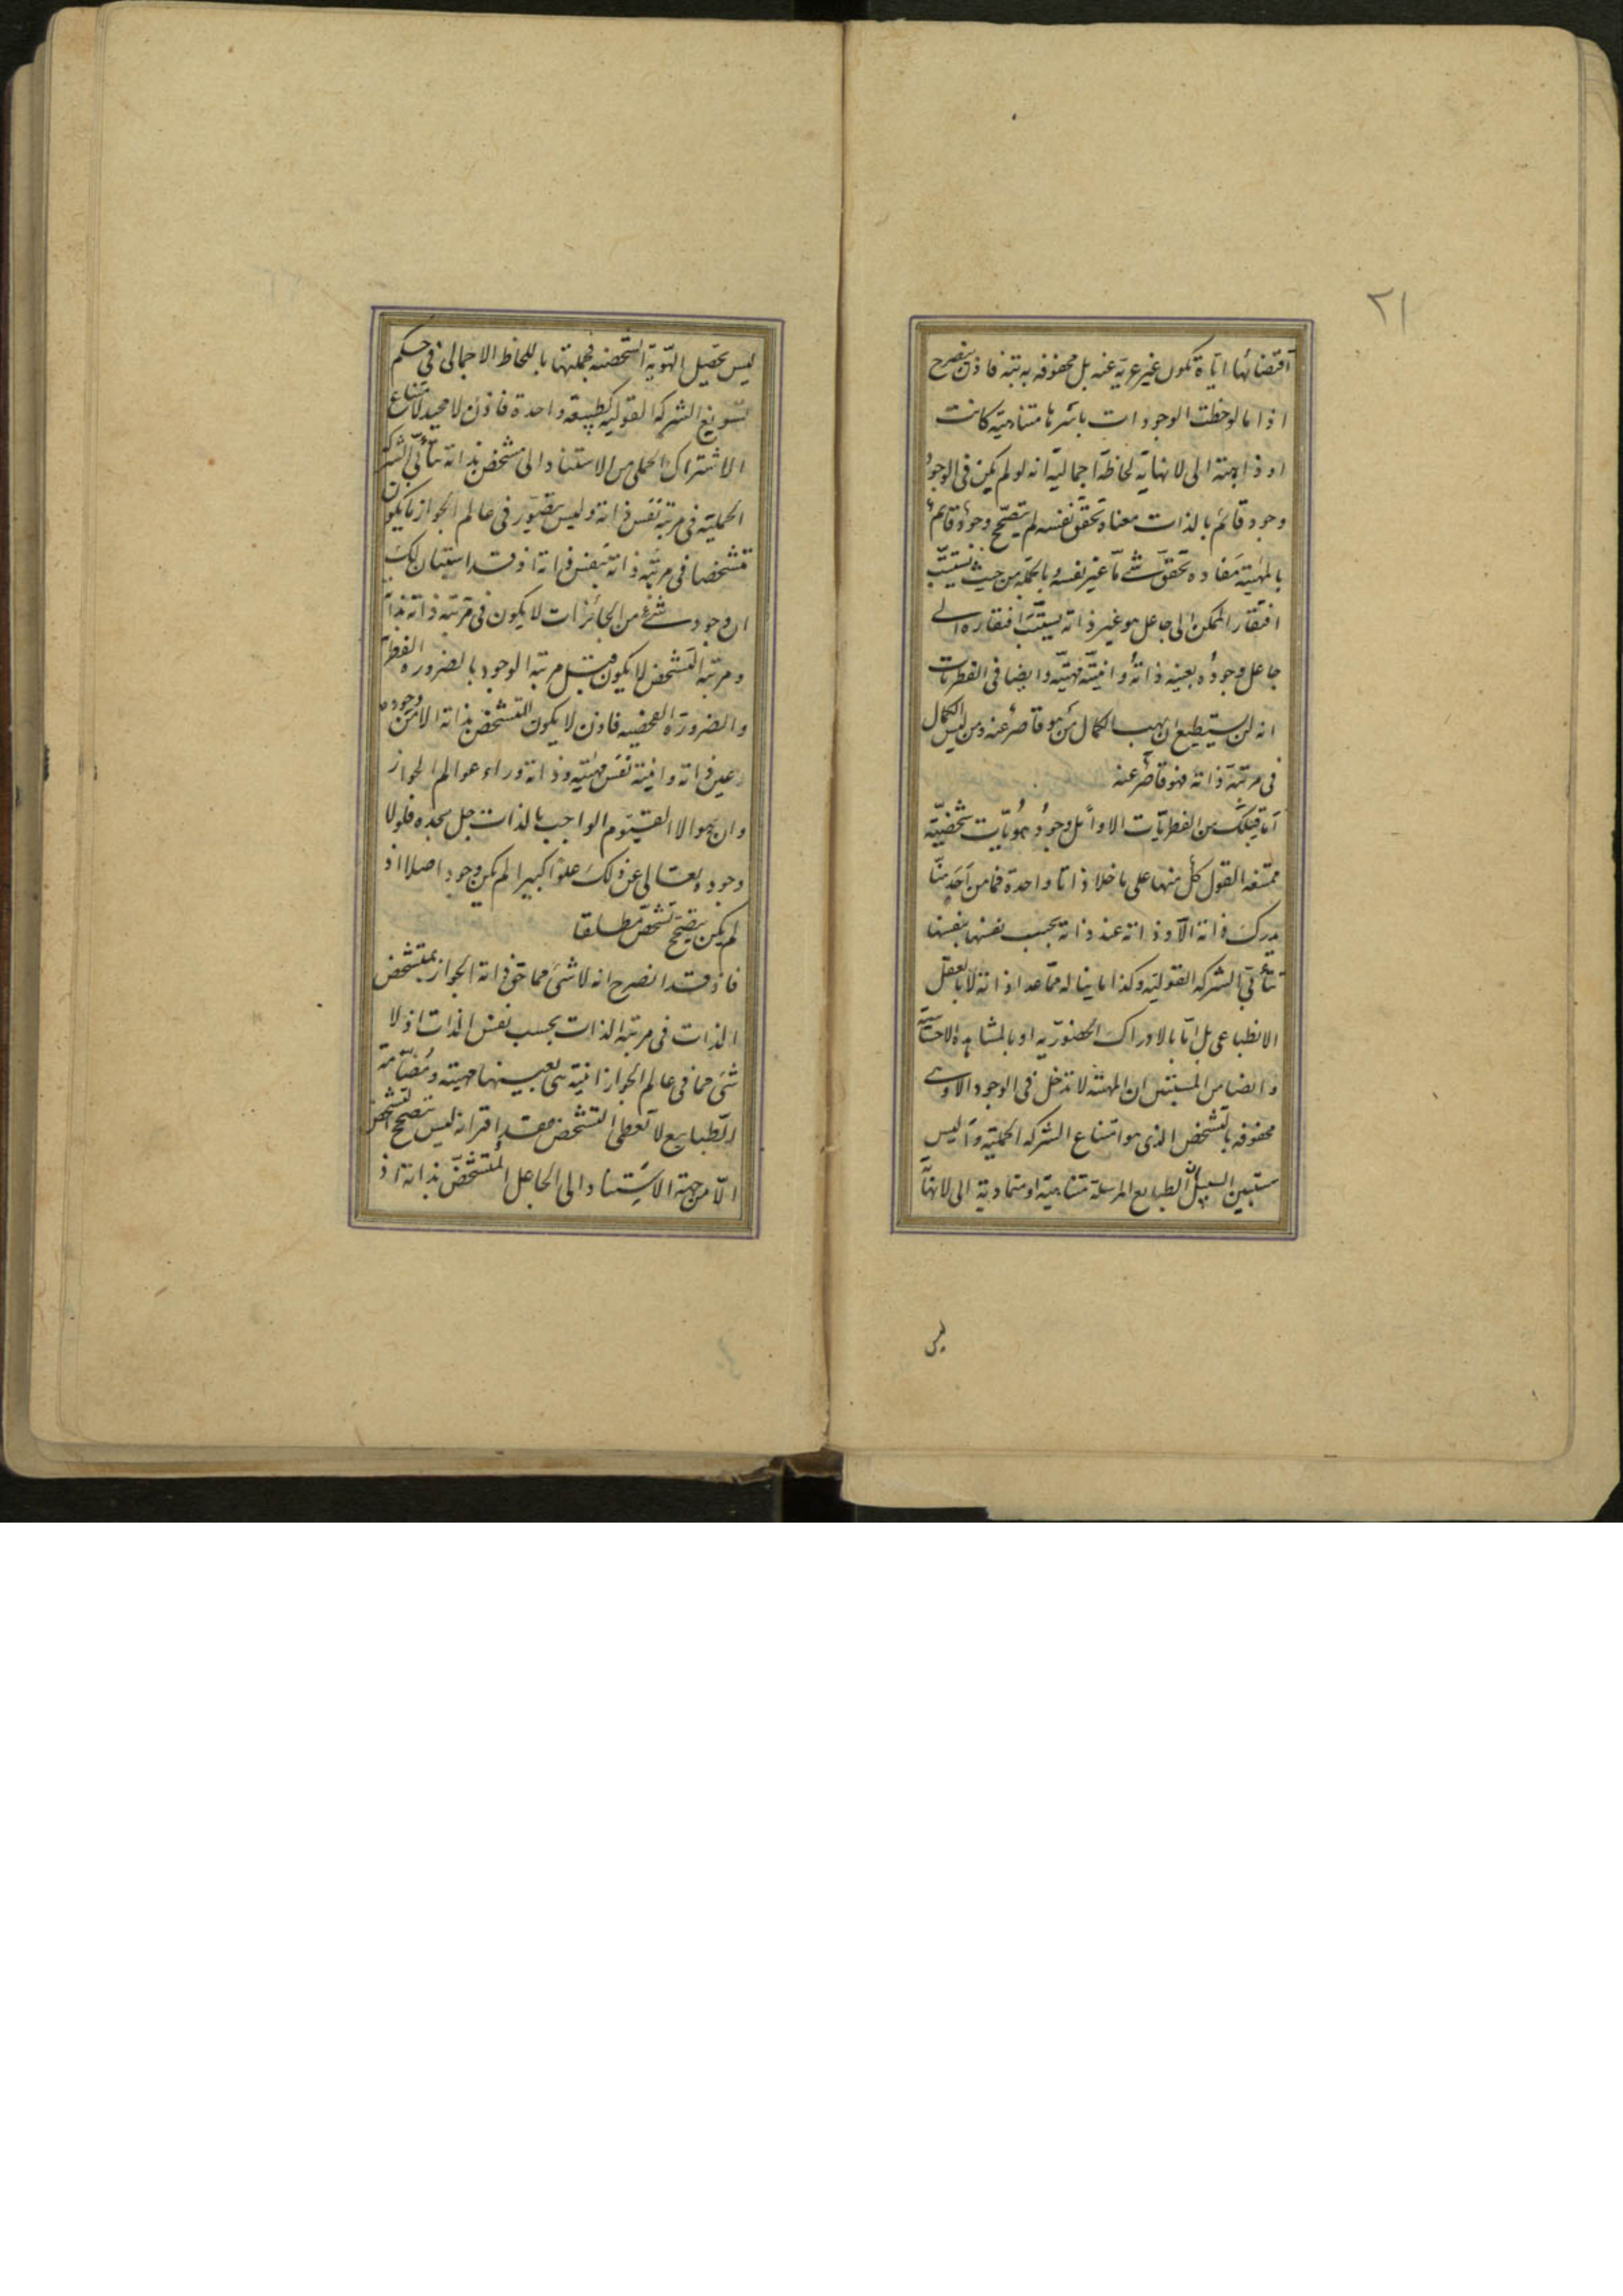 ٢١
اقتضائها اياه تكون غير عرية عنه بل محفوفه به بتة فاذن ينصرح
اذا ما لوحظت الوجودات باسرها متناهية كانت
او ذاهبة الى لا نهاية لحاظة اجمالية انه لو لم يكن فى الوجود
وجود قائم بالذات معناه تحقق نفسه لم يتصحح وجود قائم
بالمهية مفاده تحقق شئ ما غير نفسه وبالجملة من حيث يستتب
افتقار الممكن الى جاعل هو غير ذاته يستتب افتقاره الى
جاعل وجوده بعينه ذاته وانيته مهيته وايضا فى الفطريات
انه لن يستطيع ان يهب الكمال من هو قاصر عنه ومن ليس الكمال
فى مرتبة ذاته فهو قاصر عنه
اما قبلك من الفطريات الاوائل وجود هويات شخصية
ممتنعه القول كل منها على ما خلا ذاتا واحدة فما من احد منا
يدرك ذاته الا وذاته عنده ذاته بحسب نفسها بنفسها
تتأبى الشركه القولية وكذا ما يناله مما عدا ذاته لا بالتعقل
الانطباعى بل اما بالادراك الحضورية او بالمشاهدة الاحساسية
وايضا من المستبين ان المهية لا تدخل فى الوجود الا وهى
محفوفه بالتشخص الذى هو امتناع الشركه الحملية واليس
مستبين السبيل ان الطبايع المرسلة متناهية او متمادية الى لا نهاية
ليس
ليس تحصيل الهوية الشخصيه فجملتها باللحاظ الاجمالى فى حكم
تسويغ الشركه القوليه كطبيعة واحدة فاذن لا محيد لامتناع
الاشتراك الحملى من الاستناد الى متشخص بذاته تتأبى الشركة
الحملية فى مرتبة نفس ذاته وليس يتصور فى عالم الجواز ما يكون
متشخصا فى مرتبة ذاته بنفس ذاته اذ قد استبان لك
ان وجود شئ من الجائزات لا يكون فى مرتبة ذاته بذاته
ومرتبة التشخص لا يكون قبل مرتبة الوجود بالضرورة الفطرية
والضرورة الفحصيه فاذن لا يكون المتشخص بذاته الا من وجوده
عين ذاته وانيته نفس مهيته وذاته وراء عوالم الجواز
وان هو الا القيوم الواجب بالذات جل مجده فلولا
وجوده وتعالى عن ذلك علوا كبيرا لم يكن وجود اصلا اذ
لم يكن يتصحح تشخص مطلقا
فاذ قد انصرح انه لا شئ مما حق ذاته الجواز بمتشخص
الذات فى مرتبة الذات بحسب نفس الذات اذ لا
شئ مما فى عالم الجواز انيته هى بعينها مهيته ومضامة
الطبايع لا تعطى التشخص فقد اقتر انه ليس يتصحح التشخص
الا من جهة الاستناد الى الجاعل المتشخص بذاته اذ